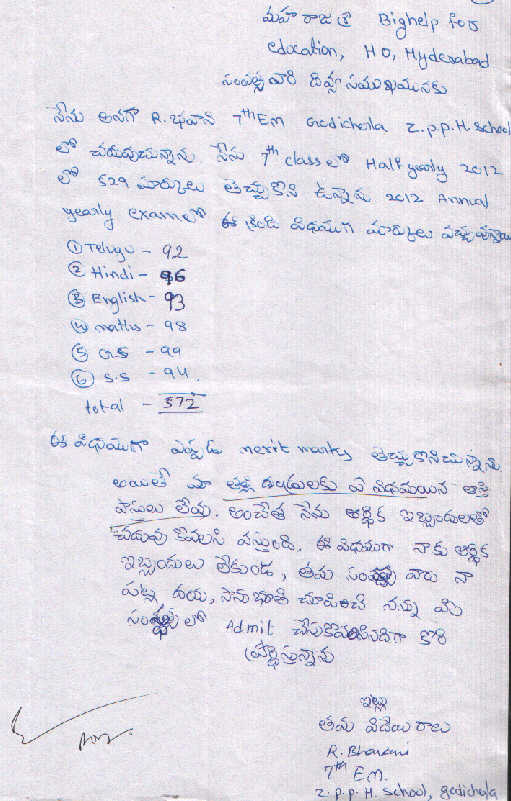 మహారాజశ్రీ Bighelp for
education, HO, Hyderabad
సంస్థ వారి దివ్య సముఖమునకు
నేను అనగా R. భవాని 7th EM Gadicherla Z.P.P.H. School
లో చదువుచున్నాను. నేను 7th class లో Half yearly 2012
లో 529 మార్కులు తెచ్చుకొని ఉన్నాను 2012 Annual
yearly exam లో ఈ క్రింది విధముగ మార్కులు వచ్చు
① Telugu - 92
② Hindi - 96
③ English - 93
④ maths - 98
⑤ G.S - 99
⑥ S.S - 94.
total - 572
ఈ విధముగా ఎప్పుడు merit marks తెచ్చుకొనిచున్నాను
అయితే మా తల్లి దండ్రులకు ఏ విధమయిన ఆస్తి
పాస్తులు లేవు. అంచేత నేను ఆర్థిక ఇబ్బందులతో
చదువు కోవలసి వస్తుంది. ఈ విధముగా నాకు ఆర్థిక
ఇబ్బందులు లేకుండ, తమ సంస్థ వారు నా
పట్ల దయ, సానుభూతి చూపించి నన్ను మీ
సంస్థ లో Admit చేసుకోవలసిందిగా కోరి
ప్రార్థిస్తున్నాను
ఇట్లు
తమ విదేయురాలు
R. Bhavani
7th E.M.
Z.P.P.H. School, gadicherla